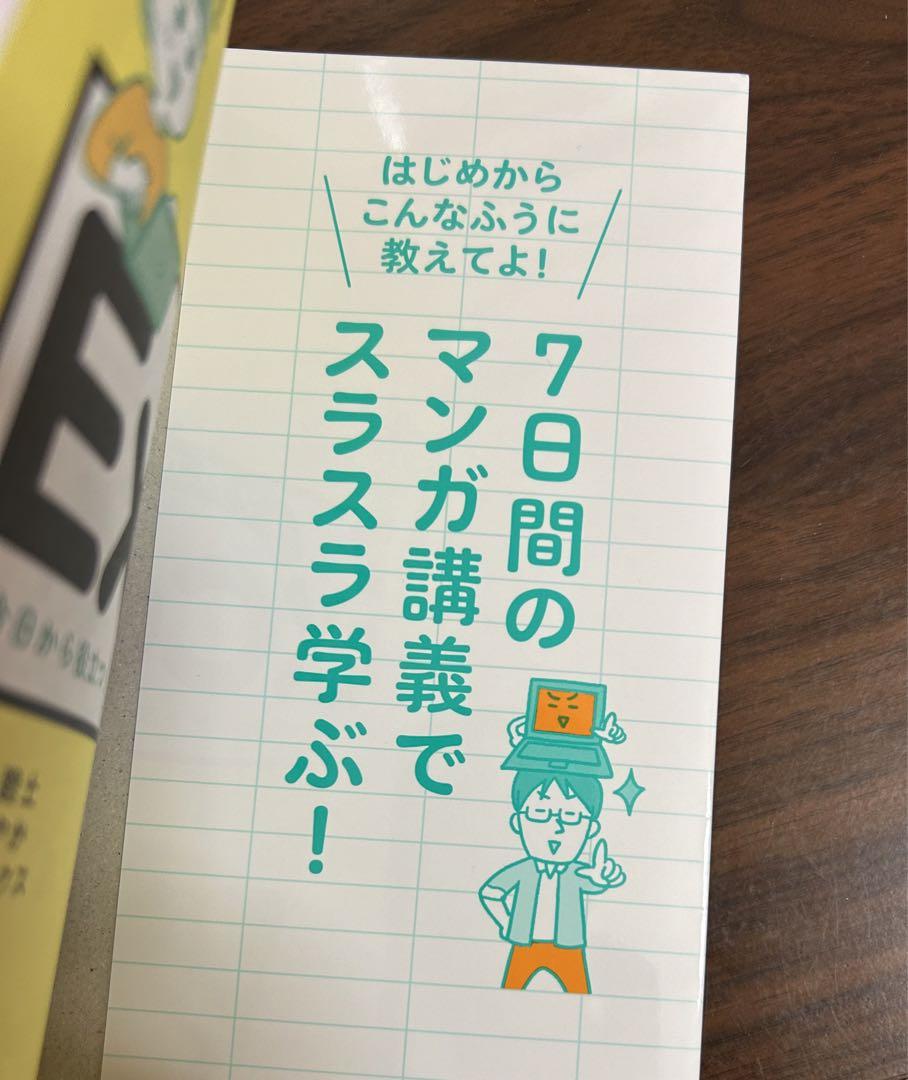 はじめから
こんなふうに
教えてよ！
7日間の
マンガ講義で
スラスラ学ぶ！
E
今日から役立つ